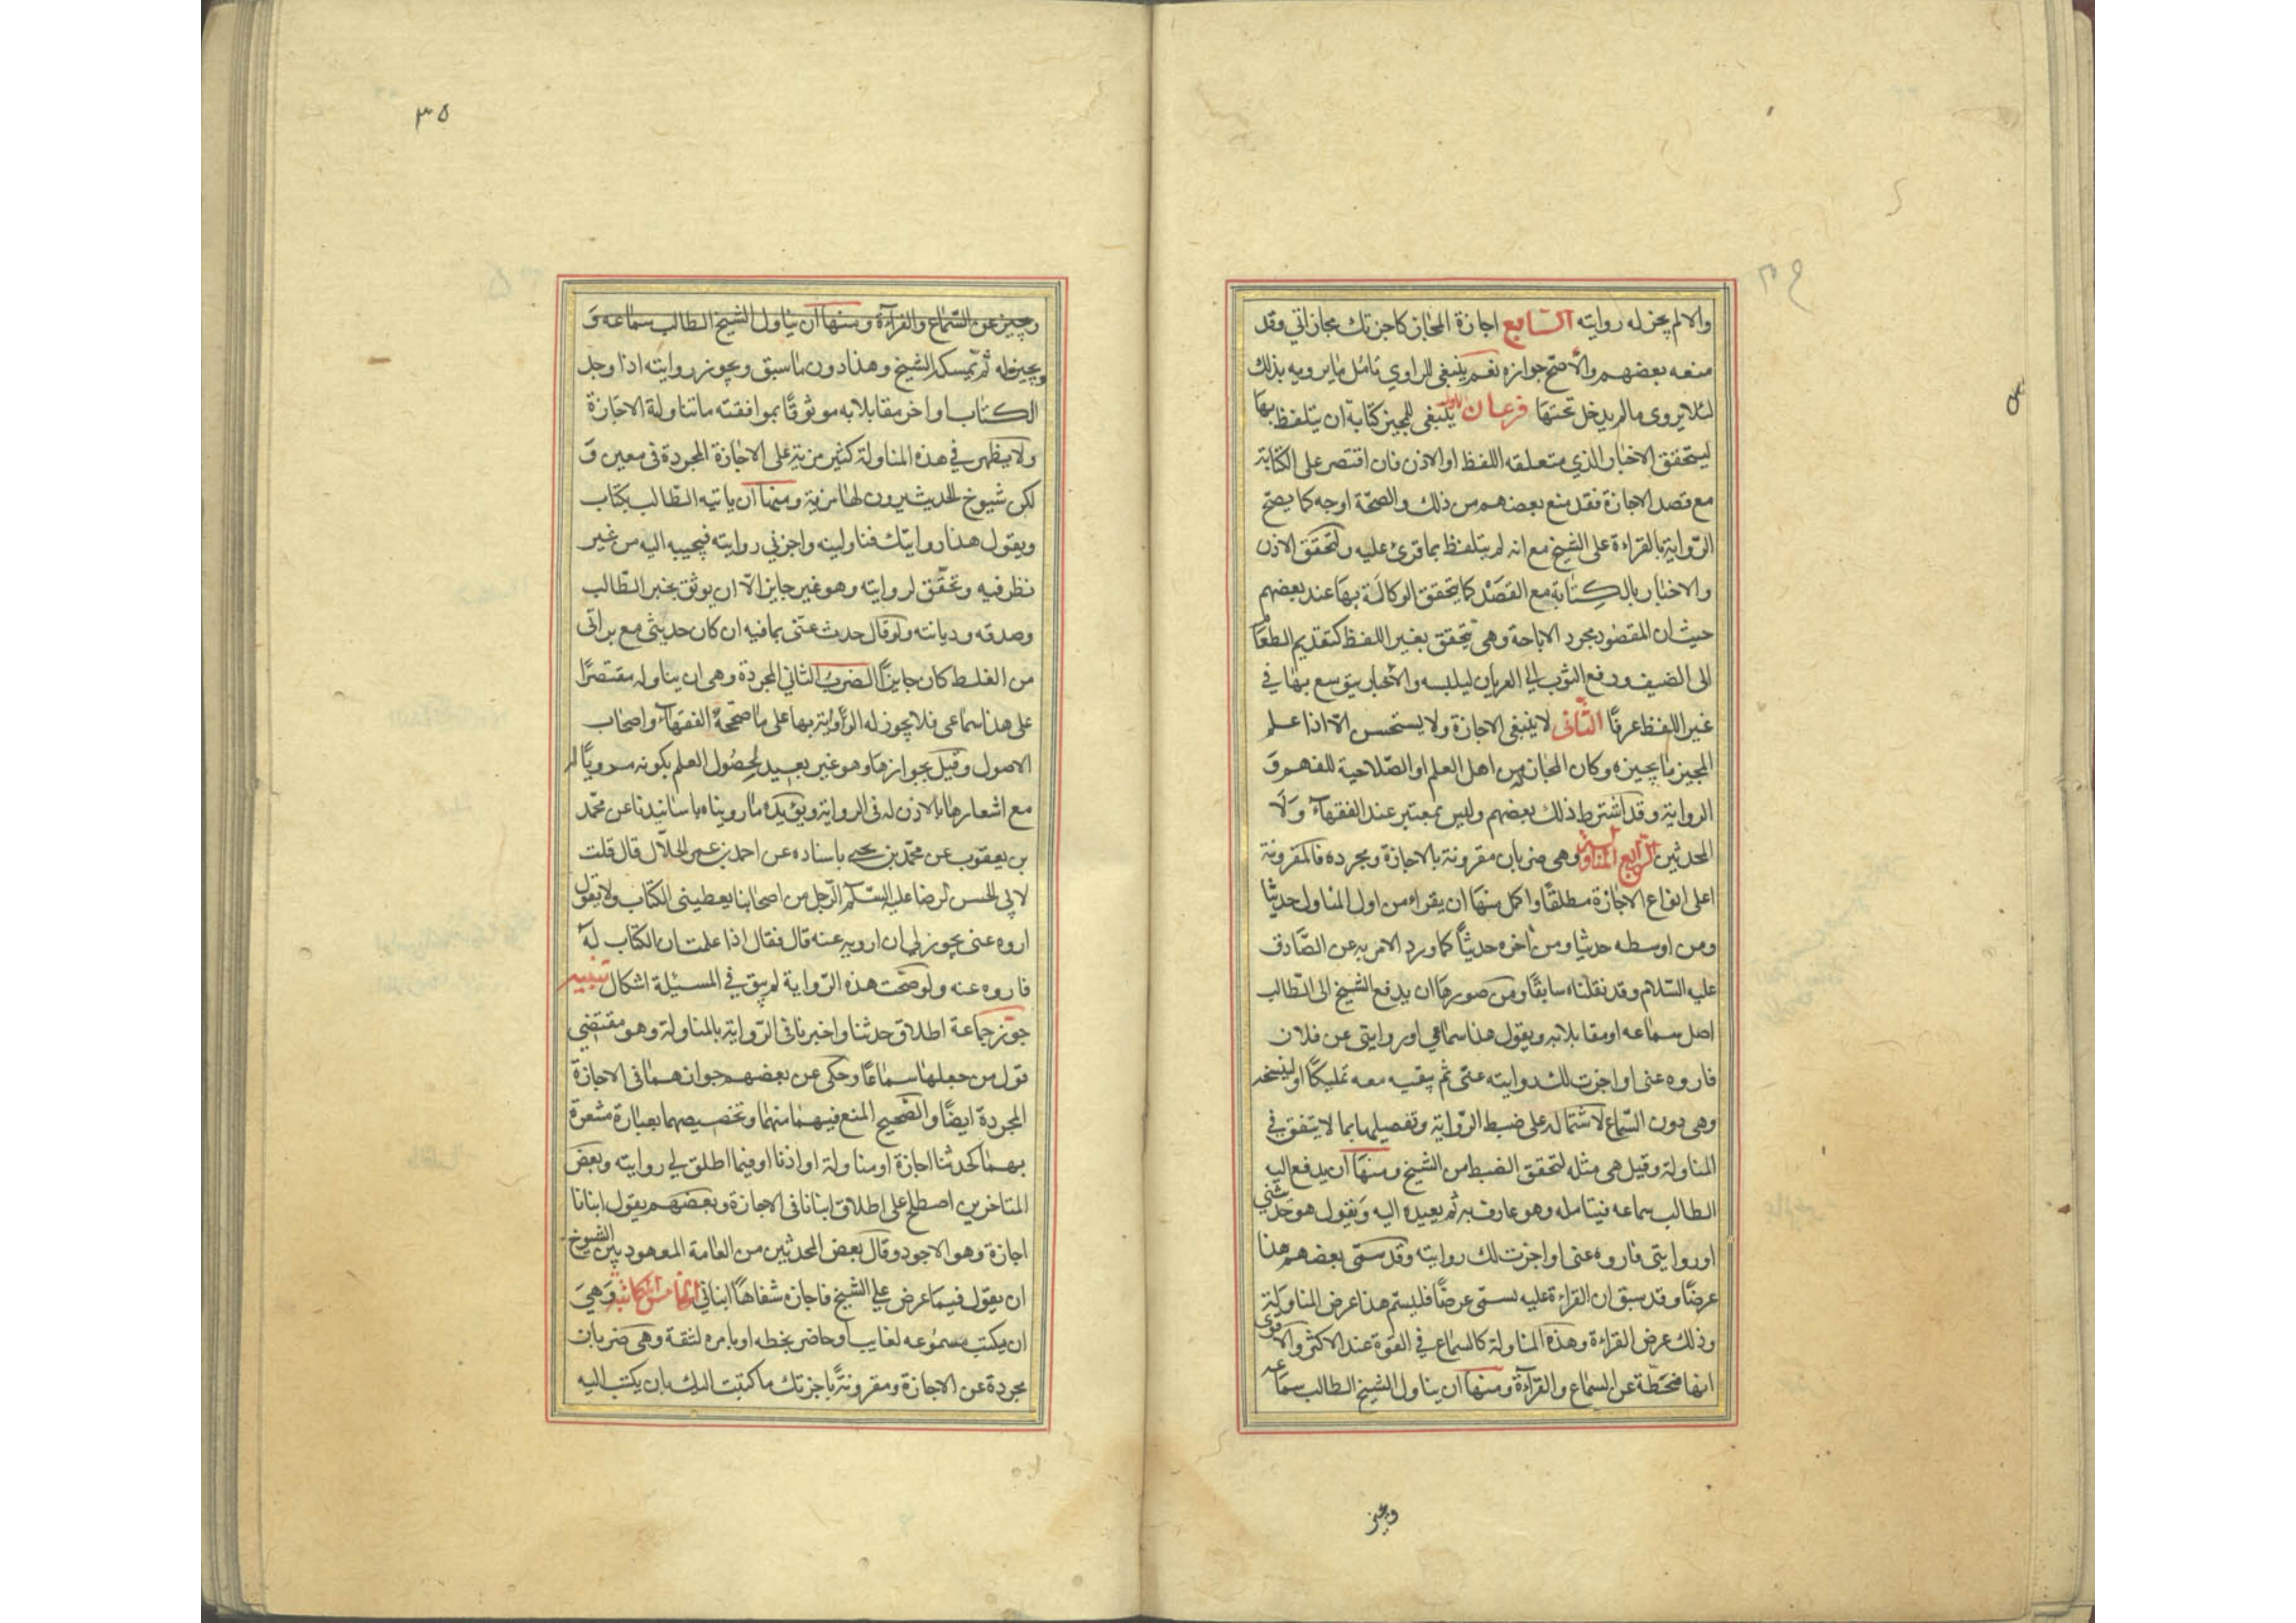 والا لم يجز له روايته السابع اجازة المجاز كاجزتك مجازاتي وقد
منعه بعضهم والأصح جوازه نعم ينبغي للراوي تامل ما يرويه بذلك
لئلا يروى ما لم يدخل تحتها فرعان الاول ينبغي للمجيز كتابة ان يتلفظ بها
ليتحقق الاخبار الذي متعلقه اللفظ او الاذن فان اقتصر على الكتابة
مع قصد الاجازة فقد منع بعضهم من ذلك والصحة اوجه كما يصح
الرواية بالقراءة على الشيخ مع انه لم يتلفظ بما قرئ عليه ولتحقق الاذن
والاخبار بالكتابة مع القصد كما يتحقق الوكالة بها عند بعضهم
حيث ان المقصود مجرد الاباحة وهى تتحقق بغير اللفظ كتقديم الطعا
الى الضيف ودفع الثوب الى العريان ليلبسه والاخبار يتوسع بها في
غير اللفظ عرفًا الثانى لا ينبغى الاجازة ولا يستحسن الا اذا علم
المجيز ما يجيزه وكان المجاز من اهل العلم او الصلاحية للفهم و
الرواية وقد اشترط ذلك بعضهم وليس بمعتبر عند الفقهاء ولا
المحدثين الرابع المناولة وهى ضربان مقرونة بالاجازة ومجرده فالمقرونة
اعلى انواع الاجازة مطلقًا واكمل منها ان يقراء من اول المناول حديثا
ومن اوسطه حديثا ومن آخره حديثًا كما ورد الامر به عن الصادق
عليه السلام وقد نقلناه سابقًا ومن صورها ان يدفع الشيخ الى الطالب
اصل سماعه او مقابلا به ويقول هذا سماعي او روايتى عن فلان
فاروه عنى او اجزت لك روايته عنى ثم يبقيه معه تمليكًا او لينسخه
وهى دون السماع لاشتماله على ضبط الرواية وتفصيلها بما لا يتفق في
المناولة وقيل هى مثله لتحقق الضبط من الشيخ ومنها ان يدفع اليه
الطالب سماعه فيتامله وهو عارف به ثم يعيده اليه ويقول هو حديثي
او روايتى فاروه عنى او اجزت لك روايته وقد سمى بعضهم هذا
عرضًا وقد سبق ان القراءة عليه تسمى عرضًا فليسم هذا عرض المناولة
وذلك عرض القراءة وهذه المناولة كالسماع في القوة عند الاكثر والاقوى
انها منحطة عن السماع والقراءة ومنها ان يناول الشيخ الطالب سماعه
ويجيز
٣٥
ويجيز عن السماع والقراءة ومنها ان يناول الشيخ الطالب سماعه و
ويجيز له ثم يمسكه الشيخ وهذا دون ما سبق ويجوز روايته اذا وجد
الكتاب او اخر مقابلا به موثوقًا بموافقته ما تناولته الاجازة
ولا يظهر في هذه المناولة كثير مزية على الاجازة المجردة فى معين و
لكن شيوخ الحديث يرون لها مزية ومنها ان ياتيه الطالب بكتاب
ويقول هذا روايتك فناولنيه واجزني روايته فيجيبه اليه من غير
نظر فيه وتحقق لروايته وهو غير جايز الا ان يوثق بخبر الطالب
وصدقه وديانته ولو قال حدث عنى بما فيه ان كان حديثي مع براتى
من الغلط كان جايزًا الضرب الثاني المجردة وهى ان يناوله مقتصرًا
على هذا سماعى فلا يجوز له الرواية بها على ما صححه الفقهاء واصحاب
الاصول وقيل بجوازها وهو غير بعيد لحصول العلم بكونه مرويا له
مع اشعارها بالاذن له فى الرواية ويؤيده ما رويناه باسانيدنا عن محمد
بن يعقوب عن محمد بن يحيى باسناده عن احمد بن عمر الحلال قال قلت
لابى الحسن الرضا عليه السلم الرجل من اصحابنا يعطينى الكتاب ولا يقول
اروه عنى يجوز لي ان ارويه عنه قال فقال اذا علمت ان الكتاب له
فاروه عنه ولو صحت هذه الرواية لم يبق في المسئلة اشكال تنبيه
جوز جماعة اطلاق حدثنا واخبرنا فى الرواية بالمناولة وهو مقتضي
قول من جعلها سماعًا وحكى عن بعضهم جوازهما فى الاجازة
المجردة ايضًا والصحيح المنع فيهما منهما وتخصيصهما بعبارة مشعرة
بهما كحدثنا اجازة او مناولة او اذنا او فيما اطلق لي روايته وبعض
المتاخرين اصطلح على اطلاق انبانا فى الاجازة وبعضهم يقول انبانا
اجازة وهو الاجود وقال بعض المحدثين من العامة المعهود بين الشيوخ
ان يقول فيما عرض على الشيخ فاجازه شفاهًا انباني الخامس الكاتبة وهي
ان يكتب مسموعه لغايب او حاضر بخطه او يامره لثقة وهى ضربان
مجردة عن الاجازة ومقرونة باجزتك ما كتبت اليك بان يكتب اليه